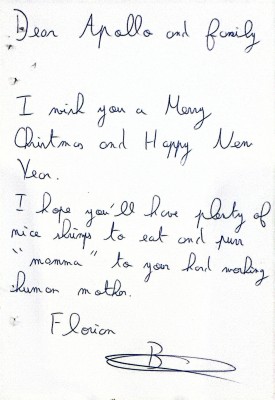 Dear Apollo and family
I wish you a Merry
Christmas and Happy New
Year.
I hope you'll have plenty of
nice shrimps to eat and purr
"mamma" to your hard working
human mother.
Florian
B